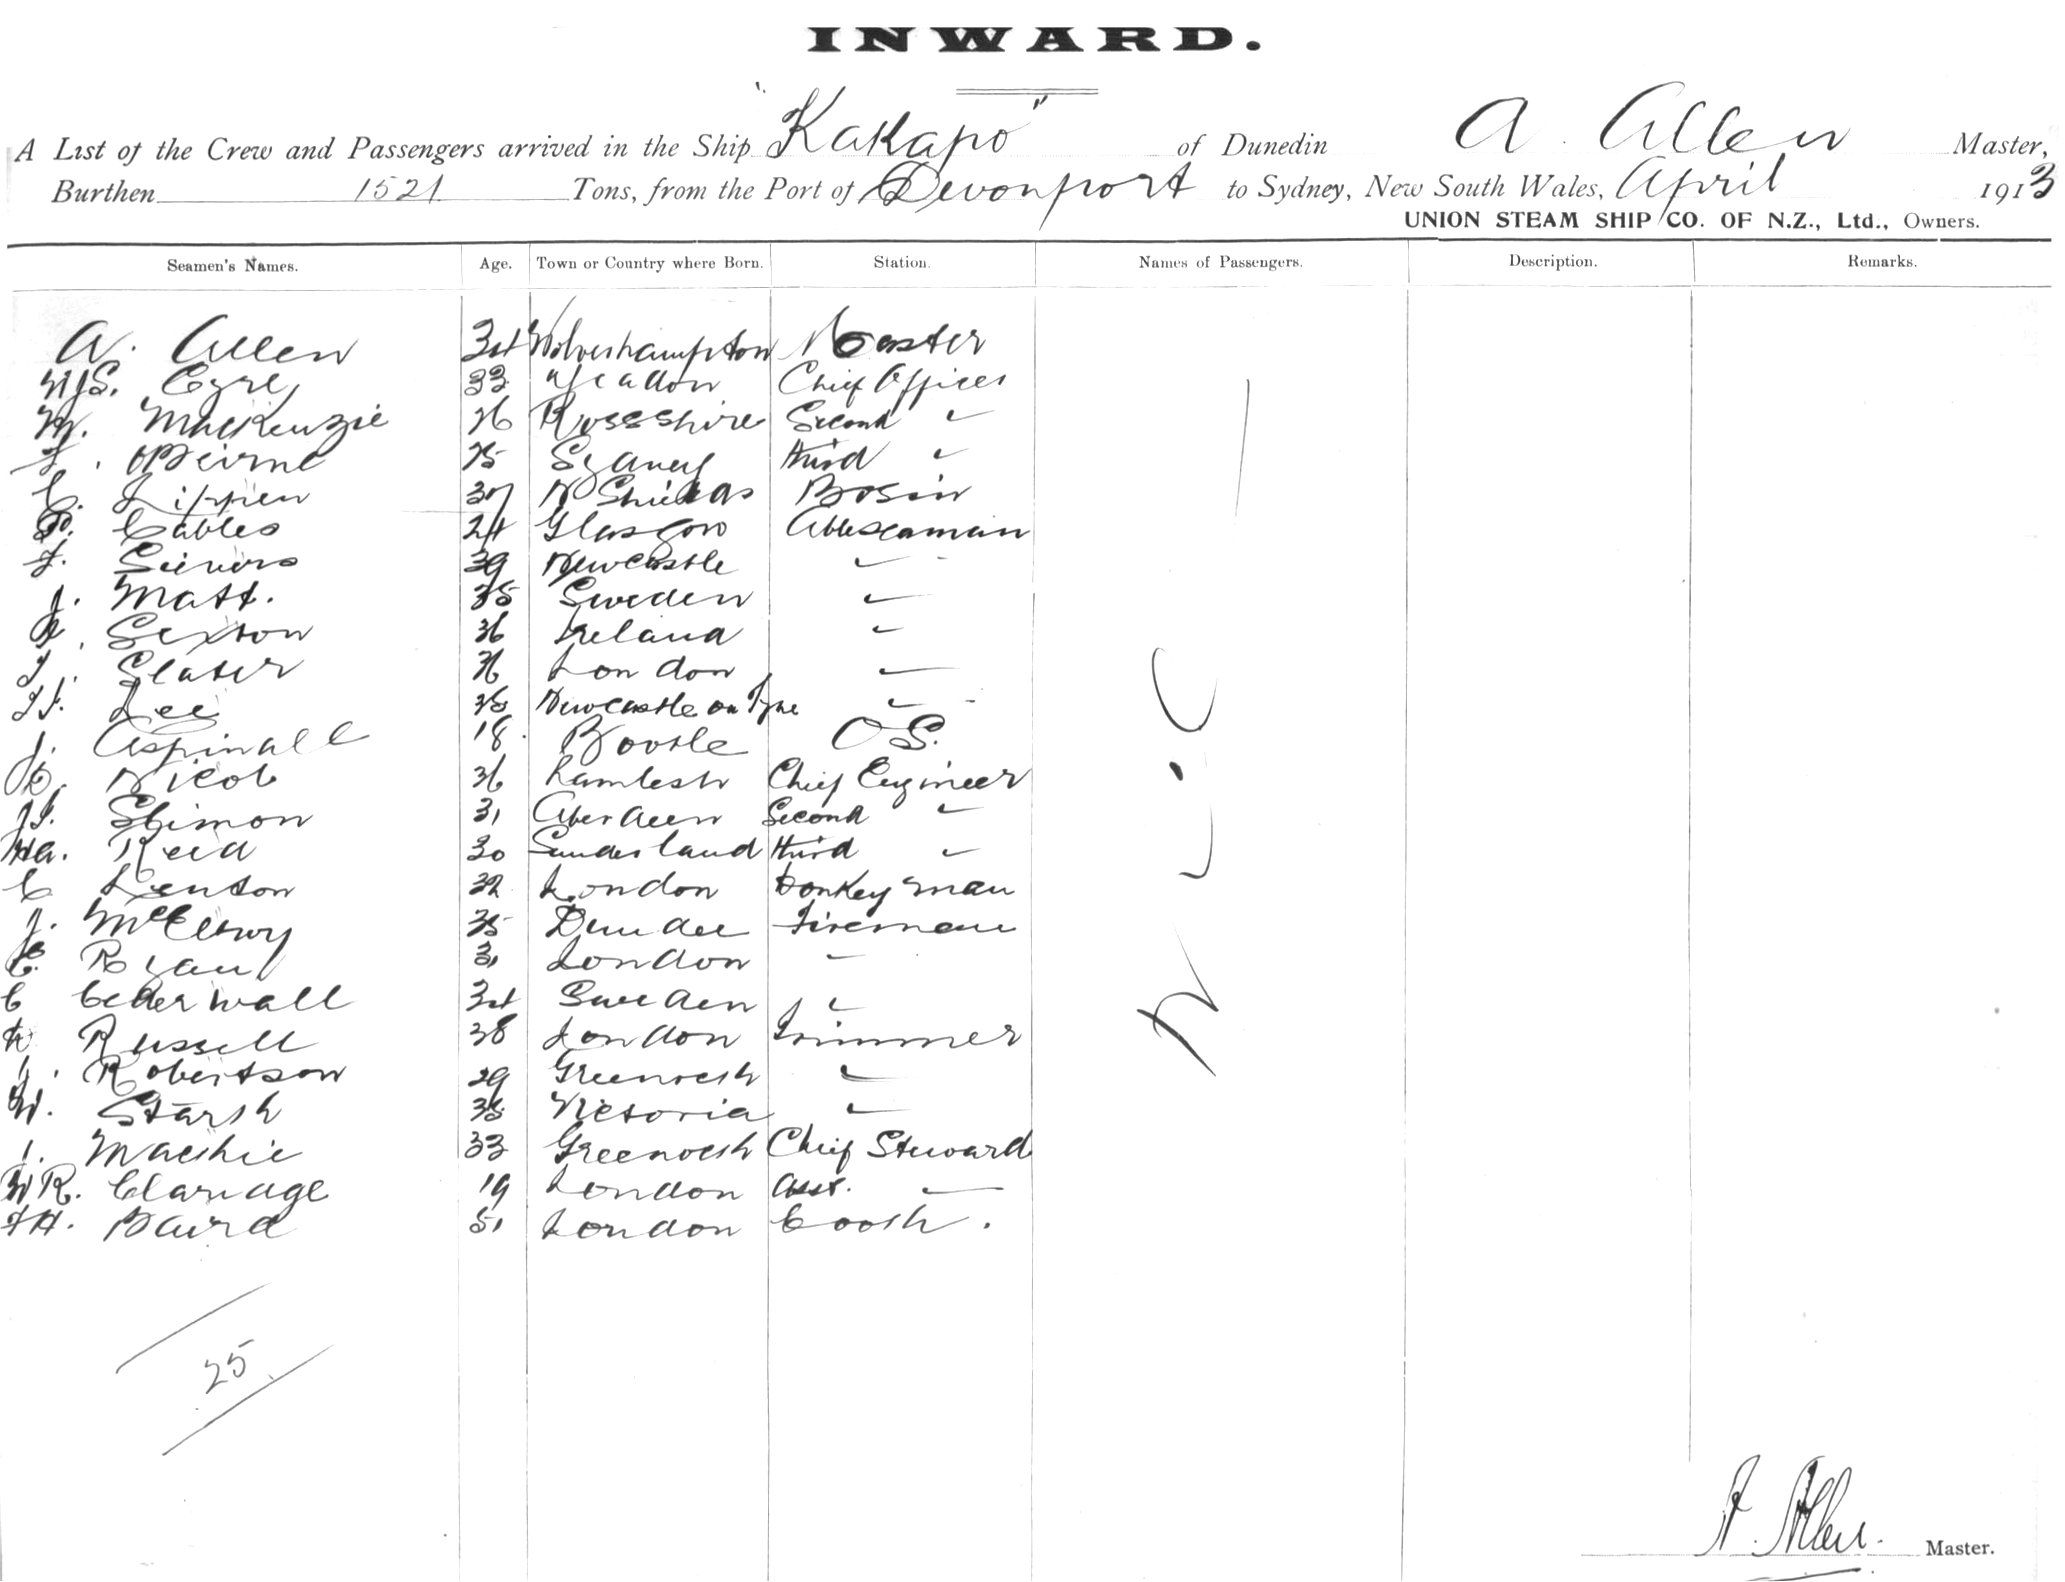 INWARD.
A List of the Crew and Passengers arrived in the Ship "Kakapo" of Dunedin A. Allen Master,
Burthen 1521 Tons, from the Port of Devonport to Sydney, New South Wales, April 1913
UNION STEAM SHIP CO. OF N.Z., Ltd., Owners.
Seamen's Names. Age. Town or Country where Born. Station. Names of Passengers. Description. Remarks.
A. Allen 34 Wolverhampton Master
Eyre 33 Yeadon Chief Officer
M. MacKenzie 26 Rossshire Second "
O'Beirne 25 Sydney third "
C. Lippen 37 N Shields Bosin
Cables 24 Glasgow Ableseaman
39 Newcastle "
J. Matt. 35 Sweden "
Sexton 36 Ireland "
Slater London "
Lee Newcastle on Tyne "
J. Aspinall 18 Bootle O S.
Nicol 36 Chief Engineer
Slimon 31 Aberdeen Second "
Reid 30 Sunderland third "
C Lenton London Donkeyman
J. McElroy 35 Dundee Fireman
Ryan 31 London "
C Cederwall 34 Sweden "
Russell 38 London Trimmer
Robertson 29 Greenock "
W. Stark Victoria "
J. Mackie 33 Greenock Chief Steward
W R. Claridge 19 London Asst. "
F H. Baird 51 London Cook.
25
A. Allen. Master.